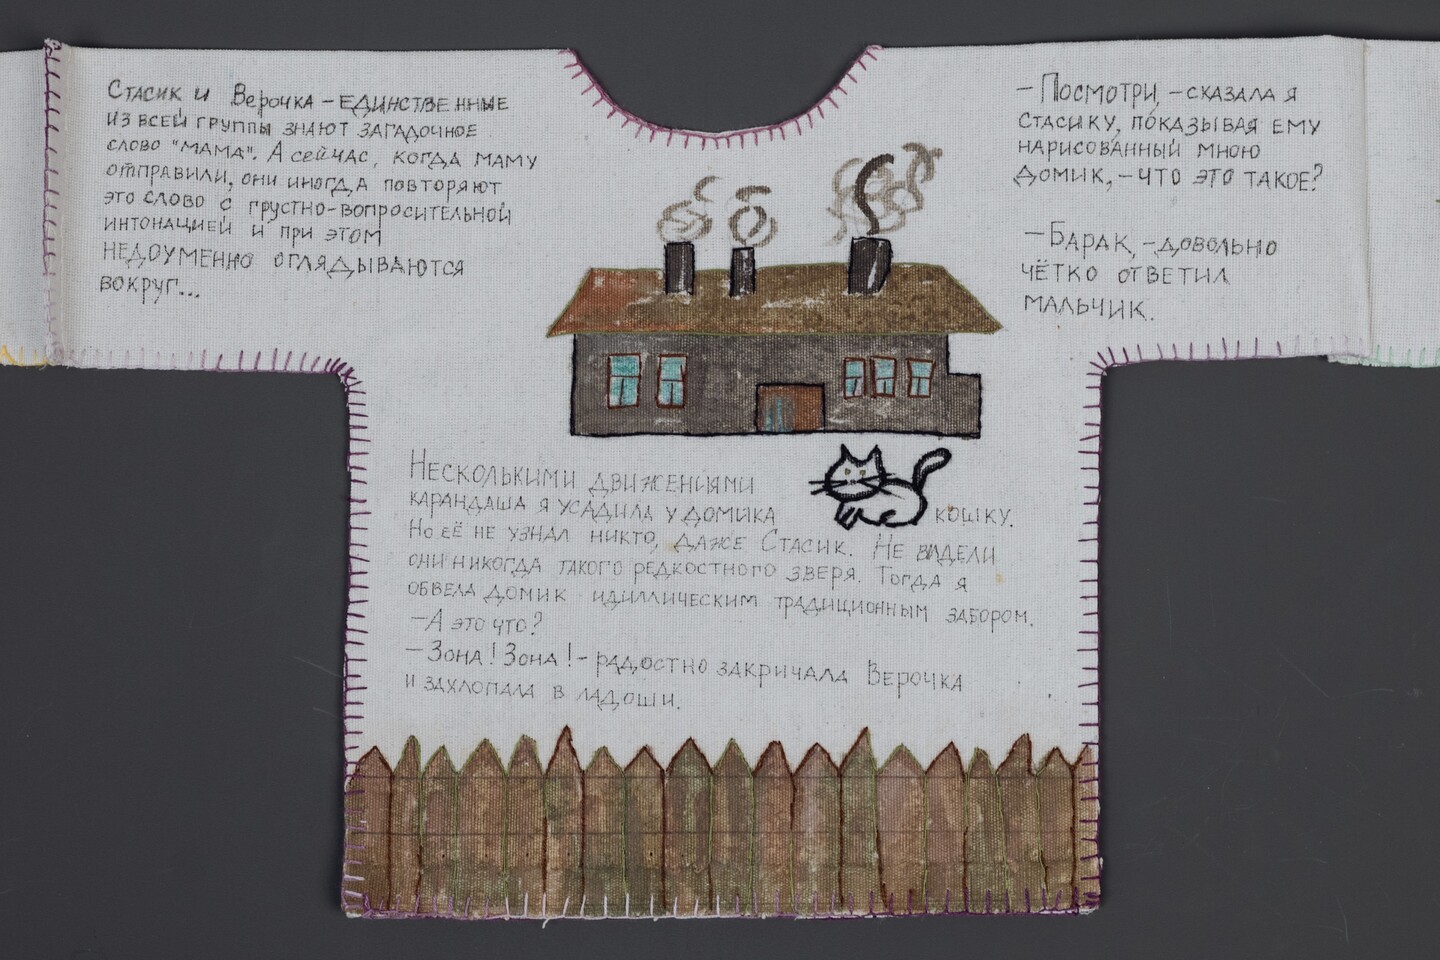 Стасик и Верочка – единственные
из всей группы знают загадочное
слово "мама". А сейчас, когда маму
отправили, они иногда повторяют
это слово с грустно-вопросительной
интонацией и при этом
недоуменно оглядываются
вокруг...
– Посмотри, – сказала я
Стасику, показывая ему
нарисованный мною
домик, – что это такое?
– Барак, – довольно
чётко ответил
мальчик.
Несколькими движениями
карандаша я усадила у домика кошку.
Но её не узнал никто, даже Стасик. Не видели
они никогда такого редкостного зверя. Тогда я
обвела домик идиллическим традиционным забором.
– А это что?
– Зона! Зона! – радостно закричала Верочка
и захлопала в ладоши.